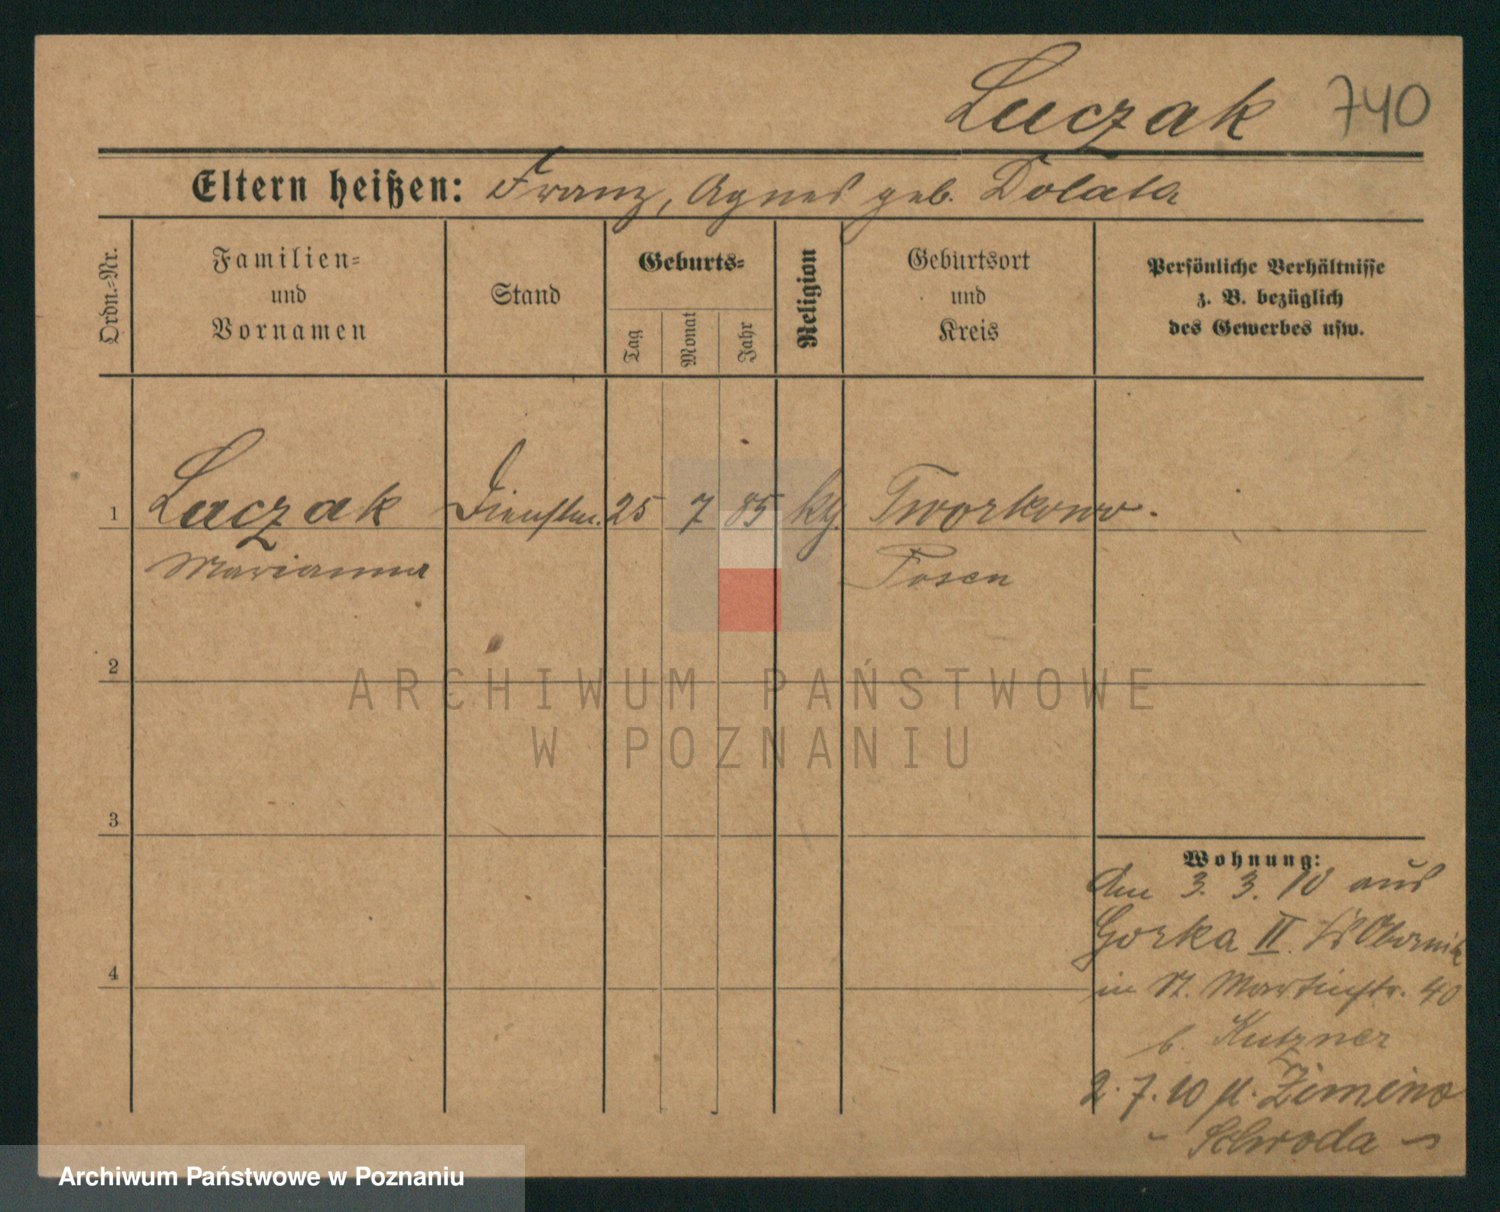 Luczak 740
Eltern heißen: Franz, Agnes geb. Dolata
Ordn.-Nr.
Familien-
und
Vornamen
Stand
Geburts-
Tag
Monat
Jahr
Religion
Geburtsort
und
Kreis
Persönliche Verhältnisse
z. B. bezüglich
des Gewerbes usw.
1 Luczak Dienstm. 25 7 85 kg Tworkowo.
Marianna Posen
2
3
4
Wohnung:
Am 3. 3. 10 aus
Gorka II. Obornik
in St. Martinstr. 40
b. Kutzner
2. 7. 10 Zimino
- Schroda -
ARCHIWUM PAŃSTWOWE
W POZNANIU
Archiwum Państwowe w Poznaniu